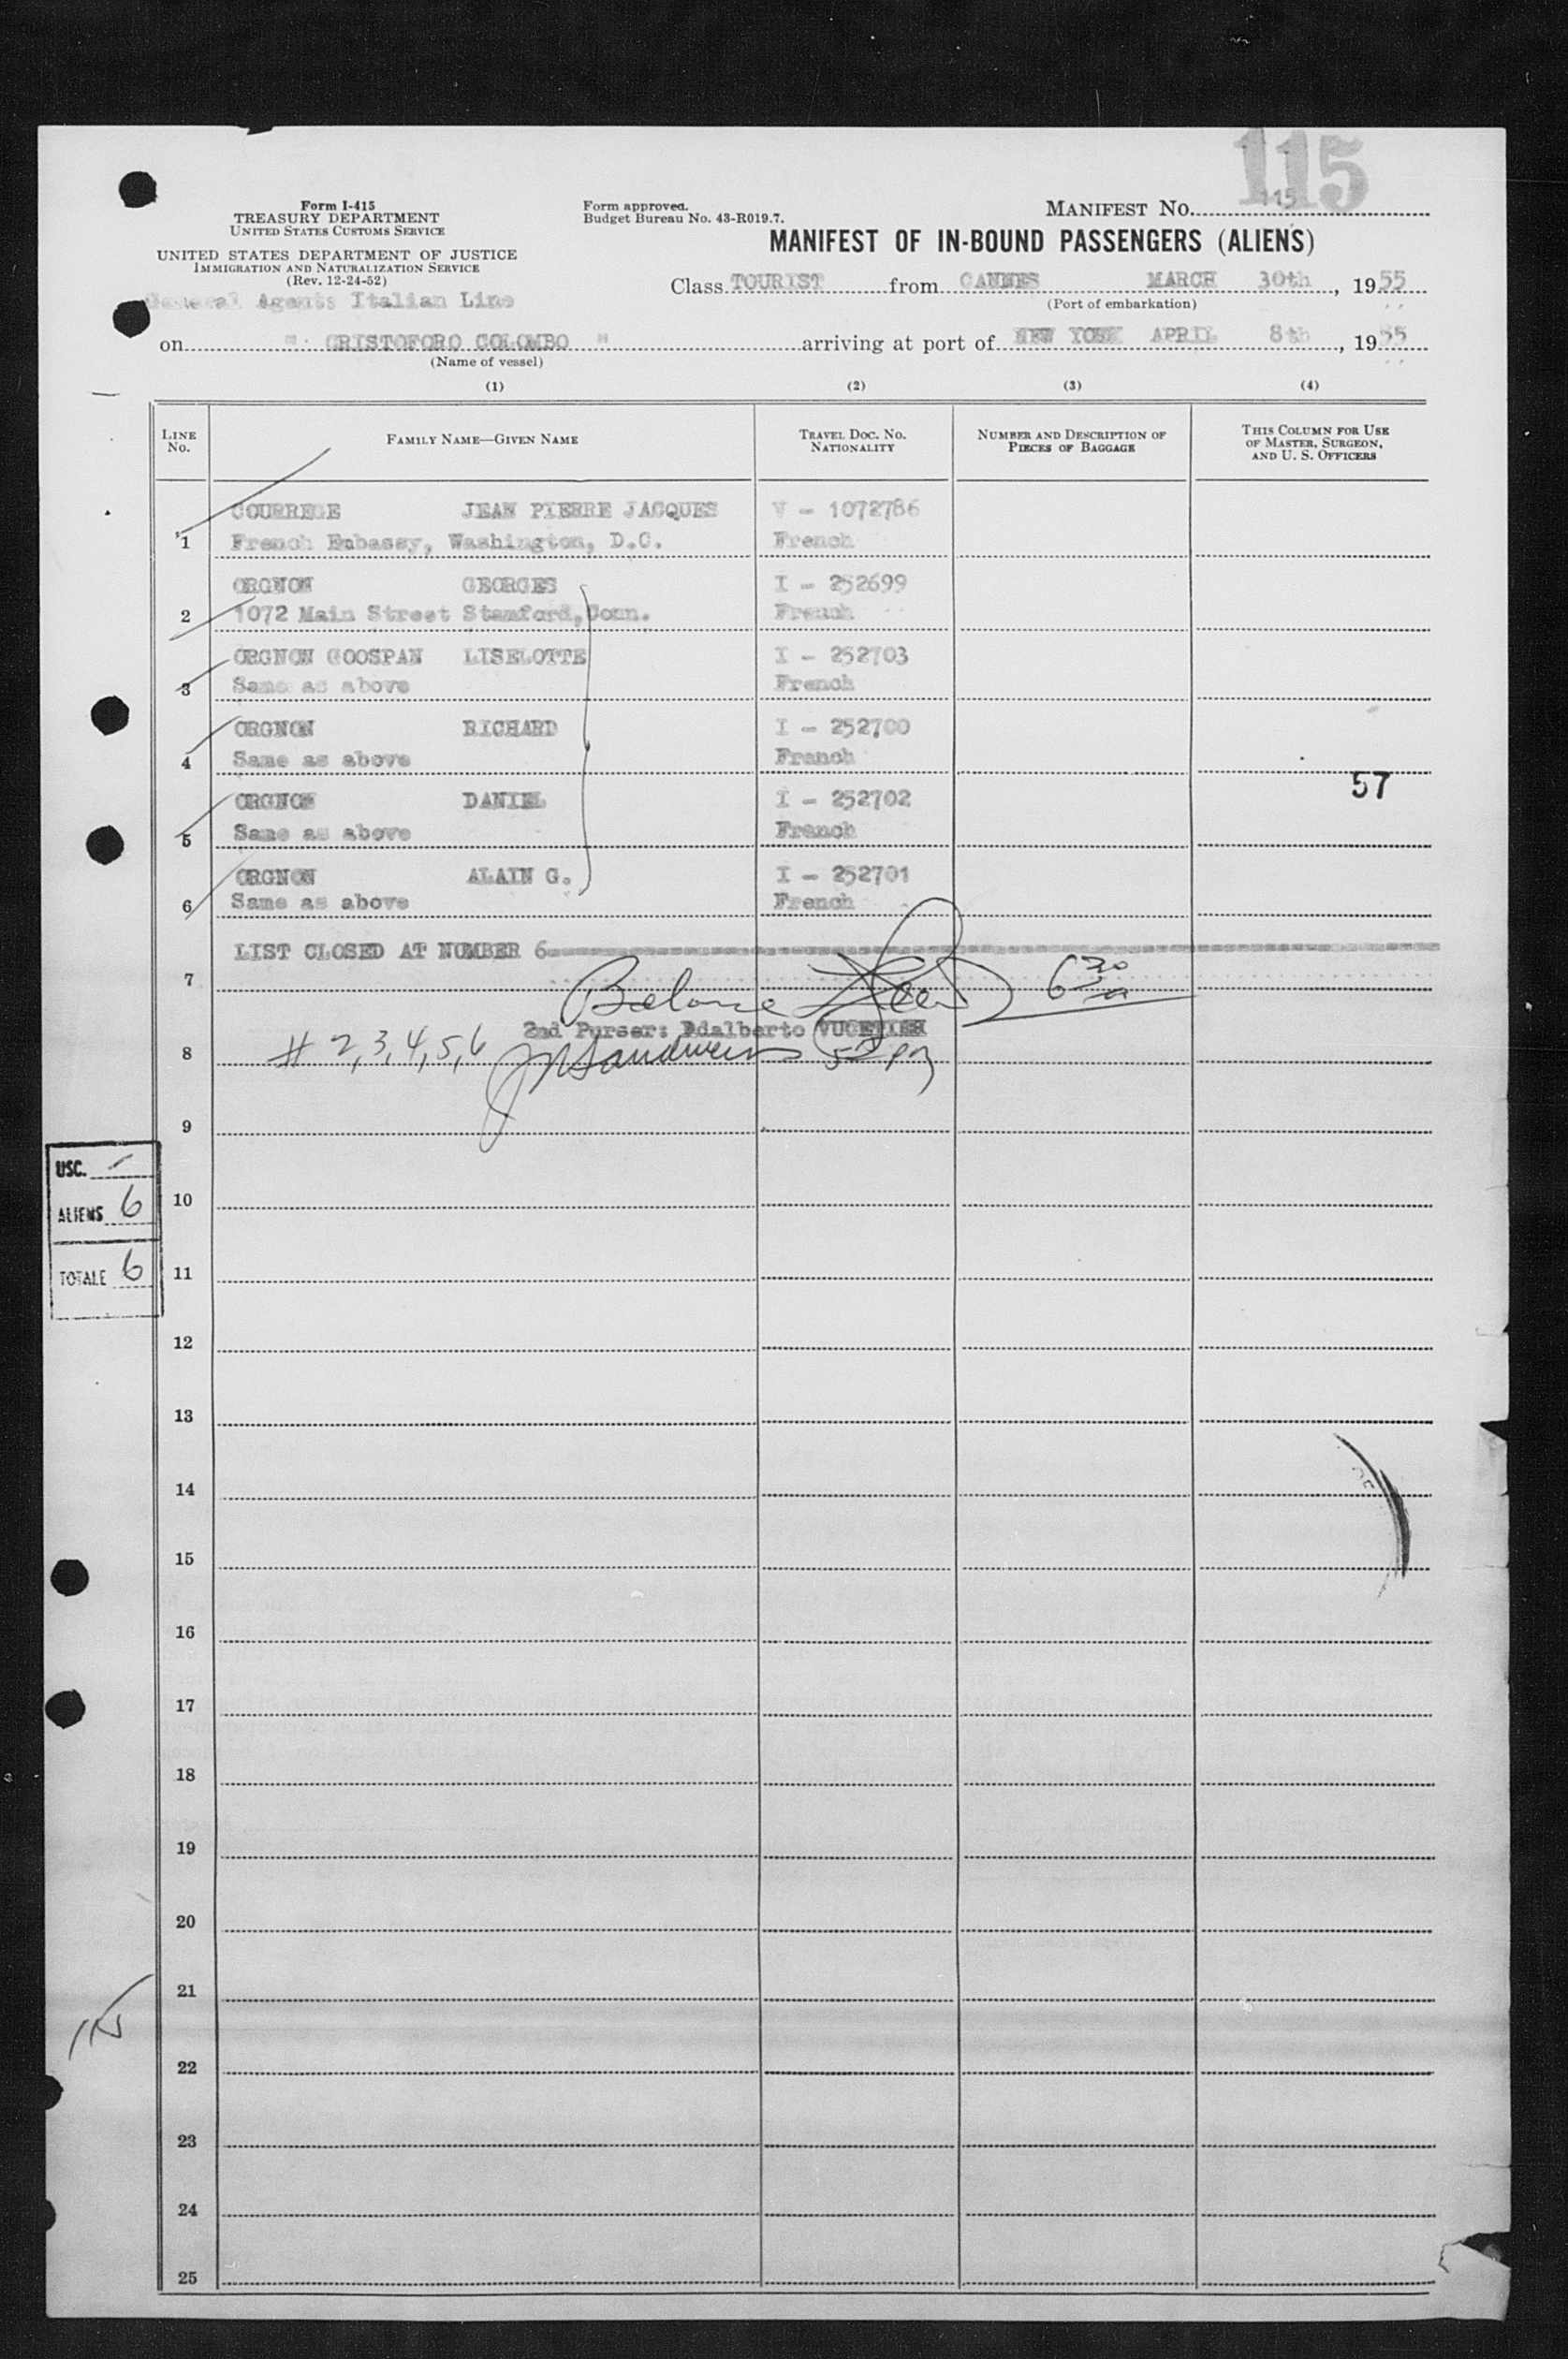 115
Form I-415
TREASURY DEPARTMENT
UNITED STATES CUSTOMS SERVICE
UNITED STATES DEPARTMENT OF JUSTICE
IMMIGRATION AND NATURALIZATION SERVICE
(Rev. 12-24-52)
General Agents Italian Line
Form approved.
Budget Bureau No. 43-R019.7.
MANIFEST NO. 115
MANIFEST OF IN-BOUND PASSENGERS (ALIENS)
Class TOURIST from CANNES MARCH 30th, 1955
(Port of embarkation)
on " CRISTOFORO COLOMBO " arriving at port of NEW YORK APRIL 8th, 1955
(Name of vessel)
(1) (2) (3) (4)
LINE NO. FAMILY NAME—GIVEN NAME TRAVEL DOC. NO. NATIONALITY NUMBER AND DESCRIPTION OF PIECES OF BAGGAGE THIS COLUMN FOR USE OF MASTER, SURGEON, AND U. S. OFFICERS
COURREGE JEAN PIERRE JACQUES V - 1072786
1 French Embassy, Washington, D.C. French
ORGNON GEORGES I - 252699
2 1072 Main Street Stamford, Conn. French
ORGNON GOOSPAN LISELOTTE I - 252703
3 Same as above French
ORGNON RICHARD I - 252700
4 Same as above French
57
ORGNON DANIEL I - 252702
5 Same as above French
ORGNON ALAIN G. I - 252701
6 Same as above French
LIST CLOSED AT NUMBER 6
7
2nd Purser: Adalberto VUCETICH
8 # 2,3,4,5,6
9
USC. -
10
ALIENS 6
11
TOTALE 6
12
13
14
15
16
17
18
19
20
21
22
23
24
25